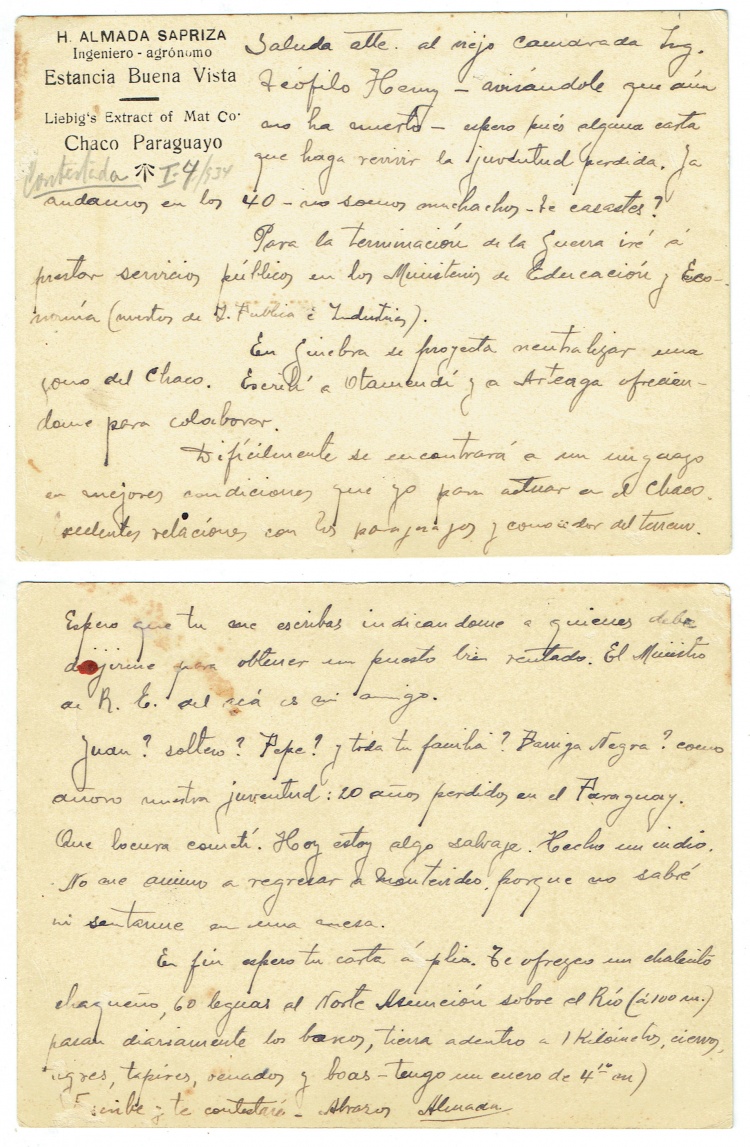 H. ALMADA SAPRIZA
Ingeniero - agrónomo
Estancia Buena Vista
Liebig's Extract of Mat Co.
Chaco Paraguayo
Contestada I-4/934
Saluda atte. al viejo camarada Ing.
Teófilo Henry – avisándole que aún
no ha muerto – espero pués alguna carta
que haga revivir la juventud perdida. Ya
andamos en los 40 – no somos muchachos – te casastes?
Para la terminación de la Guerra iré á
prestar servicios públicos en los Ministerios de Educación y Eco-
nomía (mixtos de I. Publica é Industrias).
En Ginebra se proyecta neutralizar una
zona del Chaco. Escribí a Otamendí y a Arteaga ofrecien-
dome para colaborar.
Difícilmente se encontrará a un uruguayo
en mejores condiciones que yo para actuar en el Chaco.
celentes relaciones con los paraguayos y conocedor del terreno.
Espero que tu me escribas indicandome a quienes debo
dirijirme para obtener un puesto bien rentado. El Ministro
de R. E. del acá es mi amigo.
Juan? soltero? Pepe? y toda tu familia? Barriga Negra? como
añoro nuestra juventud: 20 años perdidos en el Paraguay.
Que locura cometí. Hoy estoy algo salvaje. Hecho un indio.
No me animo a regresar a Montevideo, porque no sabré
ni sentarme en una mesa.
En fin espero tu carta á plia. Te ofrezco un chalecito
chaqueño, 60 leguas al Norte Asunción sobre el Río (á 100 m.)
pasan diariamente los barcos, tierra adentro a 1 Kilómetro, ciervos,
tigres, tapires, venados y boas – tengo un cuero de 4 m)
Escribe y te contestaré – Abrazos Almada